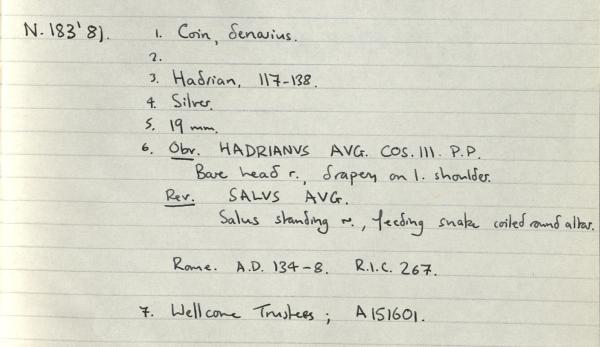 N. 183'81.
1. Coin, denarius.
2.
3. Hadrian, 117-138.
4. Silver.
5. 19 mm.
6. Obv. HADRIANVS AVG. COS. III. P.P.
Bare head r., drapery on l. shoulder.
Rev. SALVS AVG.
Salus standing r., feeding snake coiled round altar.
Rome. A.D. 134-8. R.I.C. 267.
7. Wellcome Trustees; A151601.